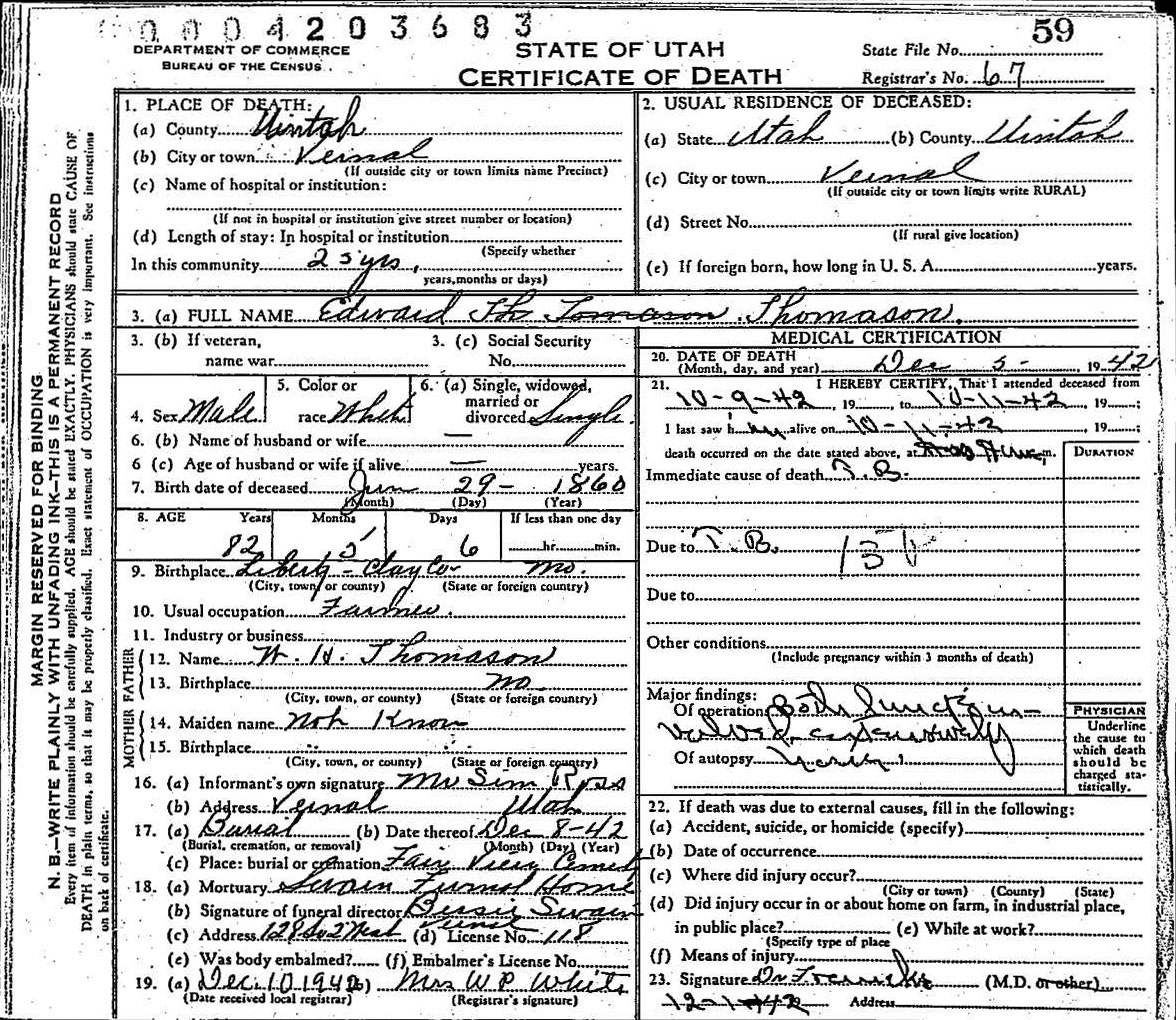 0004203683
59
DEPARTMENT OF COMMERCE
BUREAU OF THE CENSUS
STATE OF UTAH
CERTIFICATE OF DEATH
State File No.
Registrar's No. 67
MARGIN RESERVED FOR BINDING
N. B.—WRITE PLAINLY WITH UNFADING INK—THIS IS A PERMANENT RECORD
Every item of information should be carefully supplied. AGE should be stated EXACTLY. PHYSICIANS should state CAUSE OF
DEATH in plain terms, so that it may be properly classified. Exact statement of OCCUPATION is very important. See instructions
on back of certificate.
1. PLACE OF DEATH:
(a) County Uintah
(b) City or town Vernal
(If outside city or town limits name Precinct)
(c) Name of hospital or institution:
(If not in hospital or institution give street number or location)
(d) Length of stay: In hospital or institution
(Specify whether
In this community 25 yrs,
years, months or days)
2. USUAL RESIDENCE OF DECEASED:
(a) State Utah (b) County Uintah
(c) City or town Vernal
(If outside city or town limits write RURAL)
(d) Street No.
(If rural give location)
(e) If foreign born, how long in U. S. A. years.
3. (a) FULL NAME Edward Tho Tomason Thomason.
3. (b) If veteran,
name war
3. (c) Social Security
No.
4. Sex Male
5. Color or
race White
6. (a) Single, widowed,
married or
divorced Single.
6. (b) Name of husband or wife —
6 (c) Age of husband or wife if alive — years.
7. Birth date of deceased Jun 29- 1860
(Month) (Day) (Year)
8. AGE Years Months Days If less than one day
82 5 6 hr. min.
9. Birthplace Liberty - Clay Co- Mo.
(City, town or county) (State or foreign country)
10. Usual occupation Farmer.
11. Industry or business
FATHER
12. Name W. H. Thomason
13. Birthplace Mo
(City, town, or county) (State or foreign country)
MOTHER
14. Maiden name Not Know
15. Birthplace
(City, town, or county) (State or foreign country)
16. (a) Informant's own signature Mr Sim Ross
(b) Address Vernal Utah
17. (a) Burial (b) Date thereof Dec 8-42
(Burial, cremation, or removal) (Month) (Day) (Year)
(c) Place: burial or cremation Fair View Cemet
18. (a) Mortuary Swain Furnal Home
(b) Signature of funeral director Bessie Swain
Vernal
(c) Address 128 So 2 West (d) License No. 118
(e) Was body embalmed? (f) Embalmer's License No.
19. (a) Dec. 10 1942 (b) Mrs W P White
(Date received local registrar) (Registrar's signature)
MEDICAL CERTIFICATION
20. DATE OF DEATH
(Month, day, and year) Dec 5- 1942
21. I HEREBY CERTIFY, That I attended deceased from
10-9-42, 19 to 10-11-42 19 ;
I last saw him alive on 10-11-42, 19 ;
death occurred on the date stated above, at m.
DURATION
Immediate cause of death T.B.
Due to T.B.
Due to
Other conditions
(Include pregnancy within 3 months of death)
Major findings:
Of operation Both
extensively
Of autopsy
PHYSICIAN
Underline
the cause to
which death
should be
charged sta-
tistically.
22. If death was due to external causes, fill in the following:
(a) Accident, suicide, or homicide (specify)
(b) Date of occurrence
(c) Where did injury occur?
(City or town) (County) (State)
(d) Did injury occur in or about home on farm, in industrial place,
in public place? (e) While at work?
(Specify type of place
(f) Means of injury
23. Signature Dr. (M.D. or other)
Address